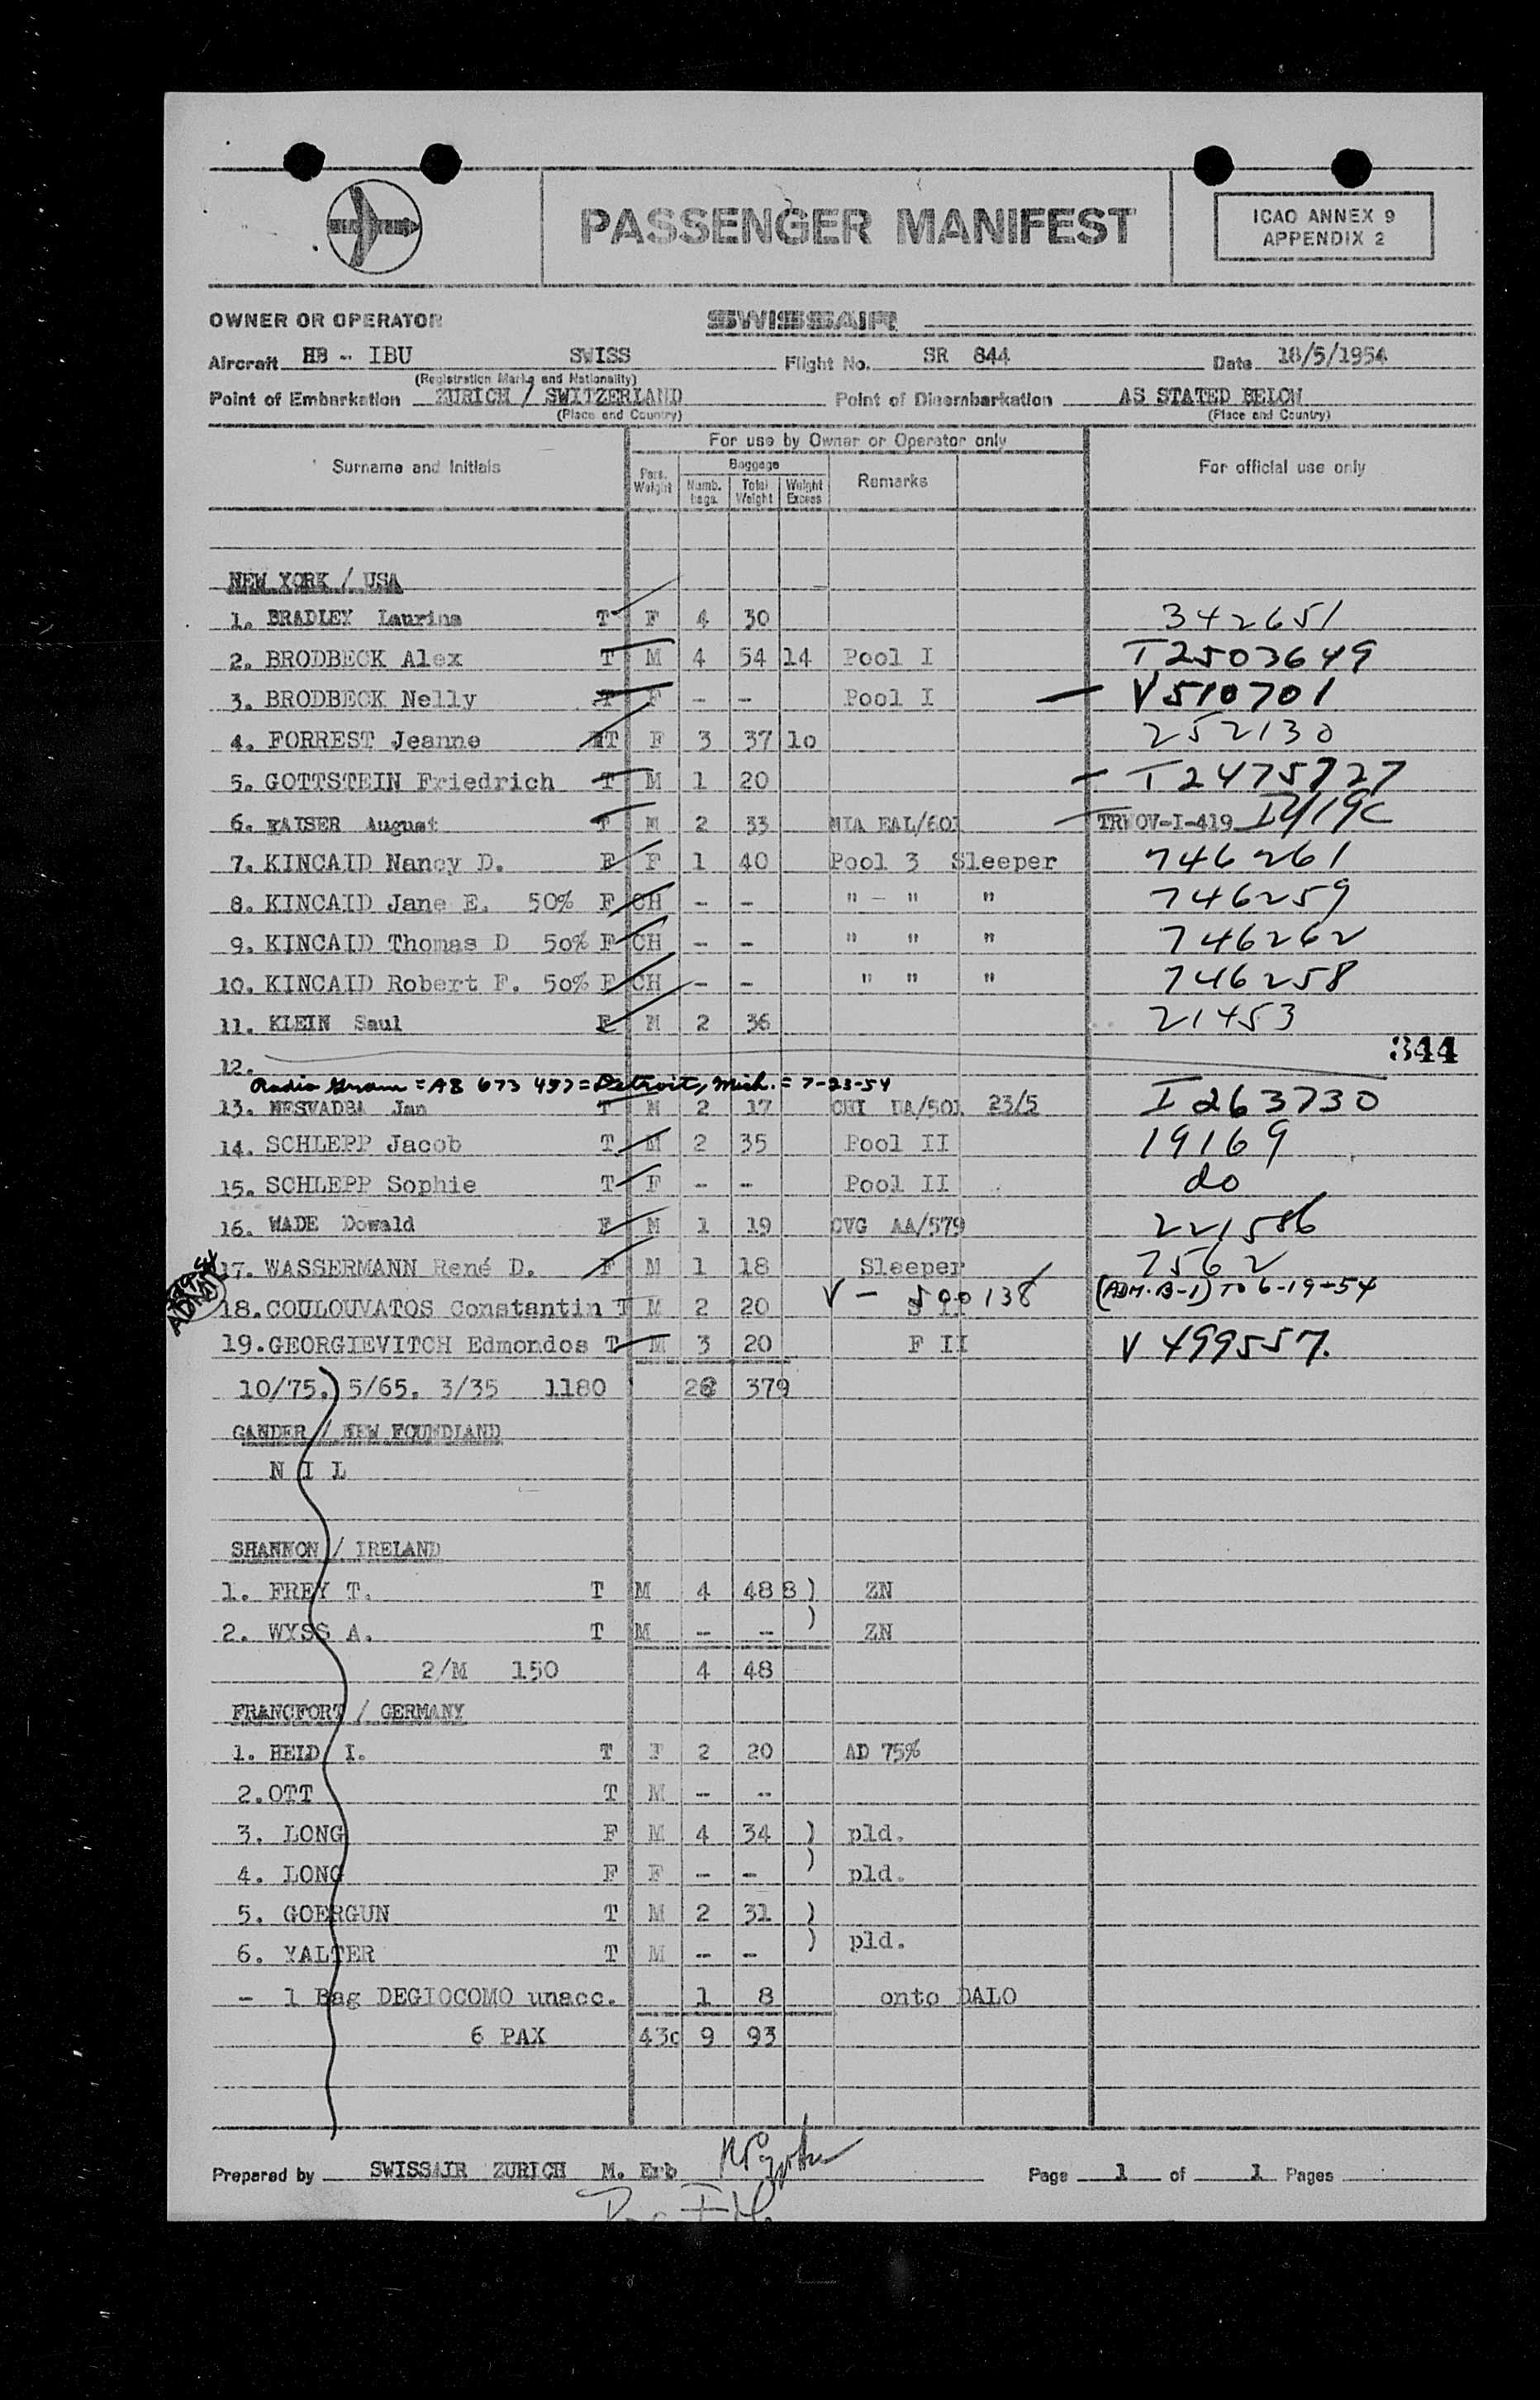 PASSENGER MANIFEST
ICAO ANNEX 9
APPENDIX 2
OWNER OR OPERATOR SWISSAIR
Aircraft HB - IBU SWISS Flight No. SR 844 Date 18/5/1954
(Registration Marks and Nationality)
Point of Embarkation ZURICH / SWITZERLAND Point of Disembarkation AS STATED BELOW
(Place and Country) (Place and Country)
For use by Owner or Operator only
Surname and Initials Pers. Weight Baggage Numb. bags. Total Weight Weight Excess Remarks For official use only
NEW YORK / USA
1. BRADLEY Laurina T F 4 30 342651
2. BRODBECK Alex T M 4 54 14 Pool I T2503649
3. BRODBECK Nelly T F - - Pool I - V510701
4. FORREST Jeanne T F 3 37 10 252130
5. GOTTSTEIN Friedrich T M 1 20 - T2475727
6. KAISER August T M 2 33 MIA EAL/601 TRWOV-I-419
7. KINCAID Nancy D. F F 1 40 Pool 3 Sleeper 746261
8. KINCAID Jane E. 50% F CH - - " - " " 746259
9. KINCAID Thomas D 50% F CH - - " " " 746262
10. KINCAID Robert F. 50% F CH - - " " " 746258
11. KLEIN Saul F M 2 36 21453
12. 344
Radio Gram = AB 673 457 = Detroit, Mich. = 7-23-54
13. NESVADBA Jan T M 2 17 CHI UA/501 23/5 I263730
14. SCHLEPP Jacob T M 2 35 Pool II 19169
15. SCHLEPP Sophie T F - - Pool II do
16. WADE Dowald F M 1 19 CVG AA/579 221586
17. WASSERMANN René D. F M 1 18 Sleeper 7562
ADM
18. COULOUVATOS Constantin T M 2 20 V - 500138 (ADM. B-1) TO 6-19-54
19. GEORGIEVITCH Edmondos T M 3 20 F II V 499557.
10/75, 5/65, 3/35 1180 28 379
GANDER / NEW FOUNDLAND
N I L
SHANNON / IRELAND
1. FREY T. T M 4 48 8 ) ZN
2. WYSS A. T M - - ) ZN
2/M 150 4 48
FRANCFORT / GERMANY
1. HELD I. T F 2 20 AD 75%
2. OTT T M - -
3. LONG F M 4 34 ) pld.
4. LONG F F - - ) pld.
5. GOERGUN T M 2 31 )
6. YALTER T M - - ) pld.
- 1 Bag DEGIOCOMO unacc. 1 8 onto DALO
6 PAX 430 9 93
Prepared by SWISSAIR ZURICH M. Erb Page 1 of 1 Pages